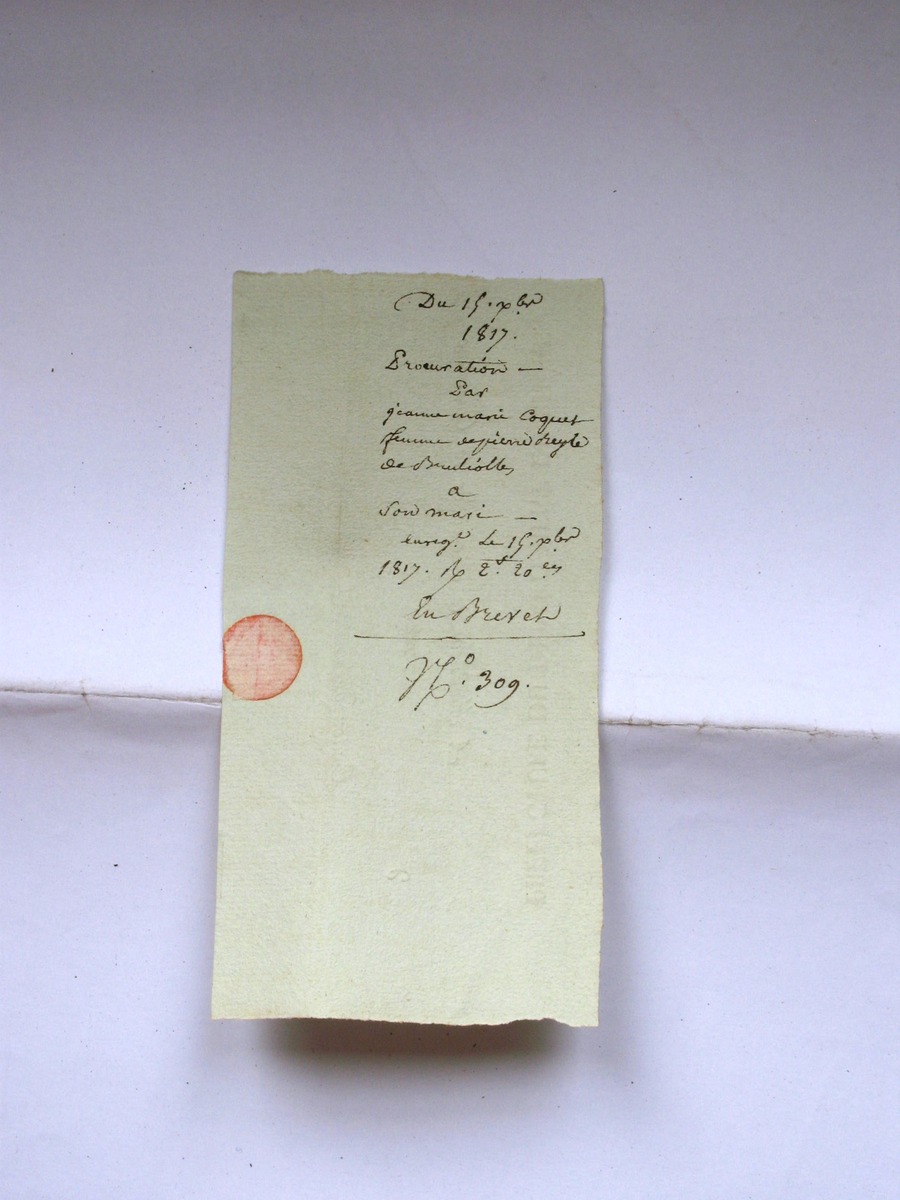 Du 15. xbre
1817.
Procuration —
Par
jeanne marie Coquet
femme de pierre
de
a
Son mari —
enregé. Le 15. xbre
1817. 2f. 20 ces
En Brevet
No. 309.